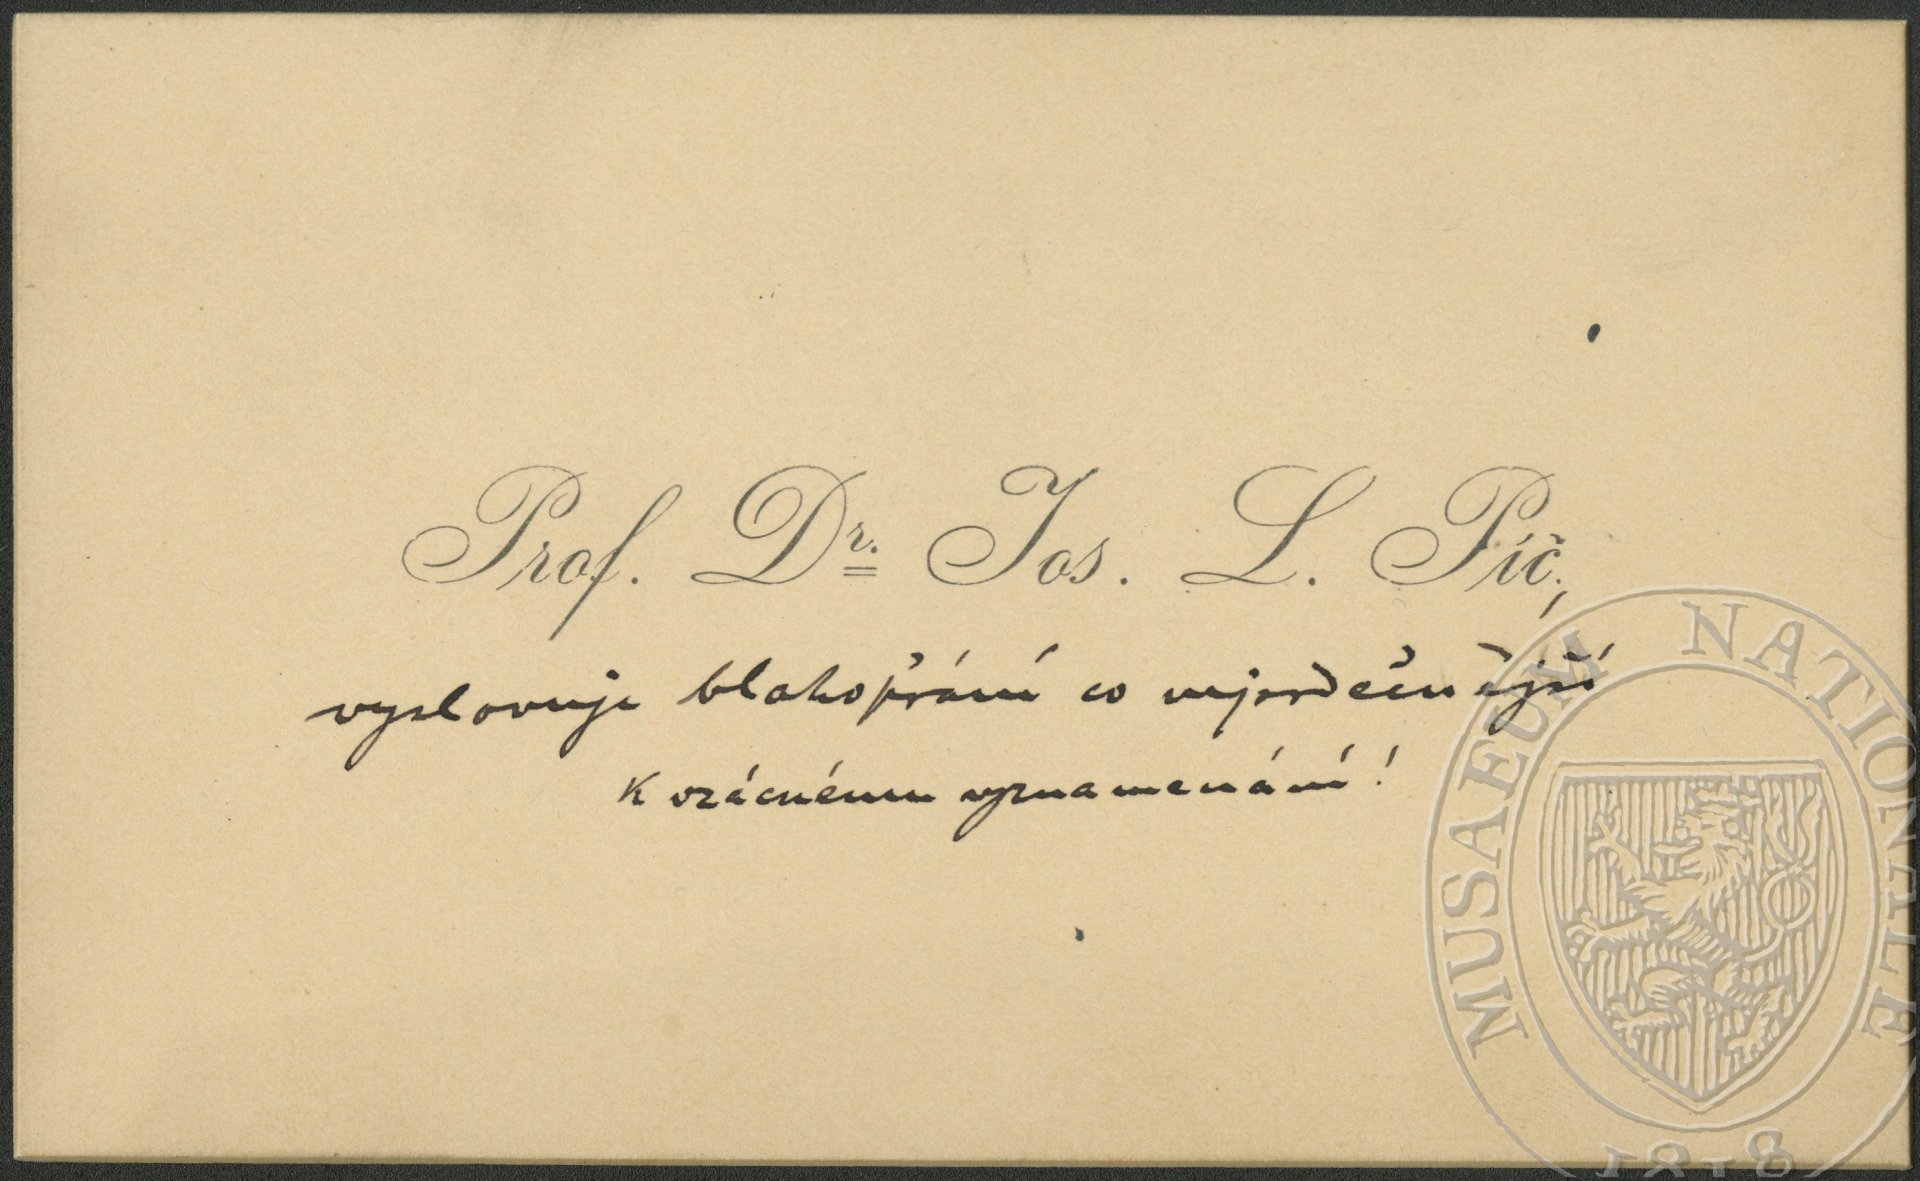 Prof. Dr. Jos. L. Píč,
vyslovuje blahopřání co nejsrdečnější
k vzácnému vyznamenání!
MUSAEUM NATIONALE
1818